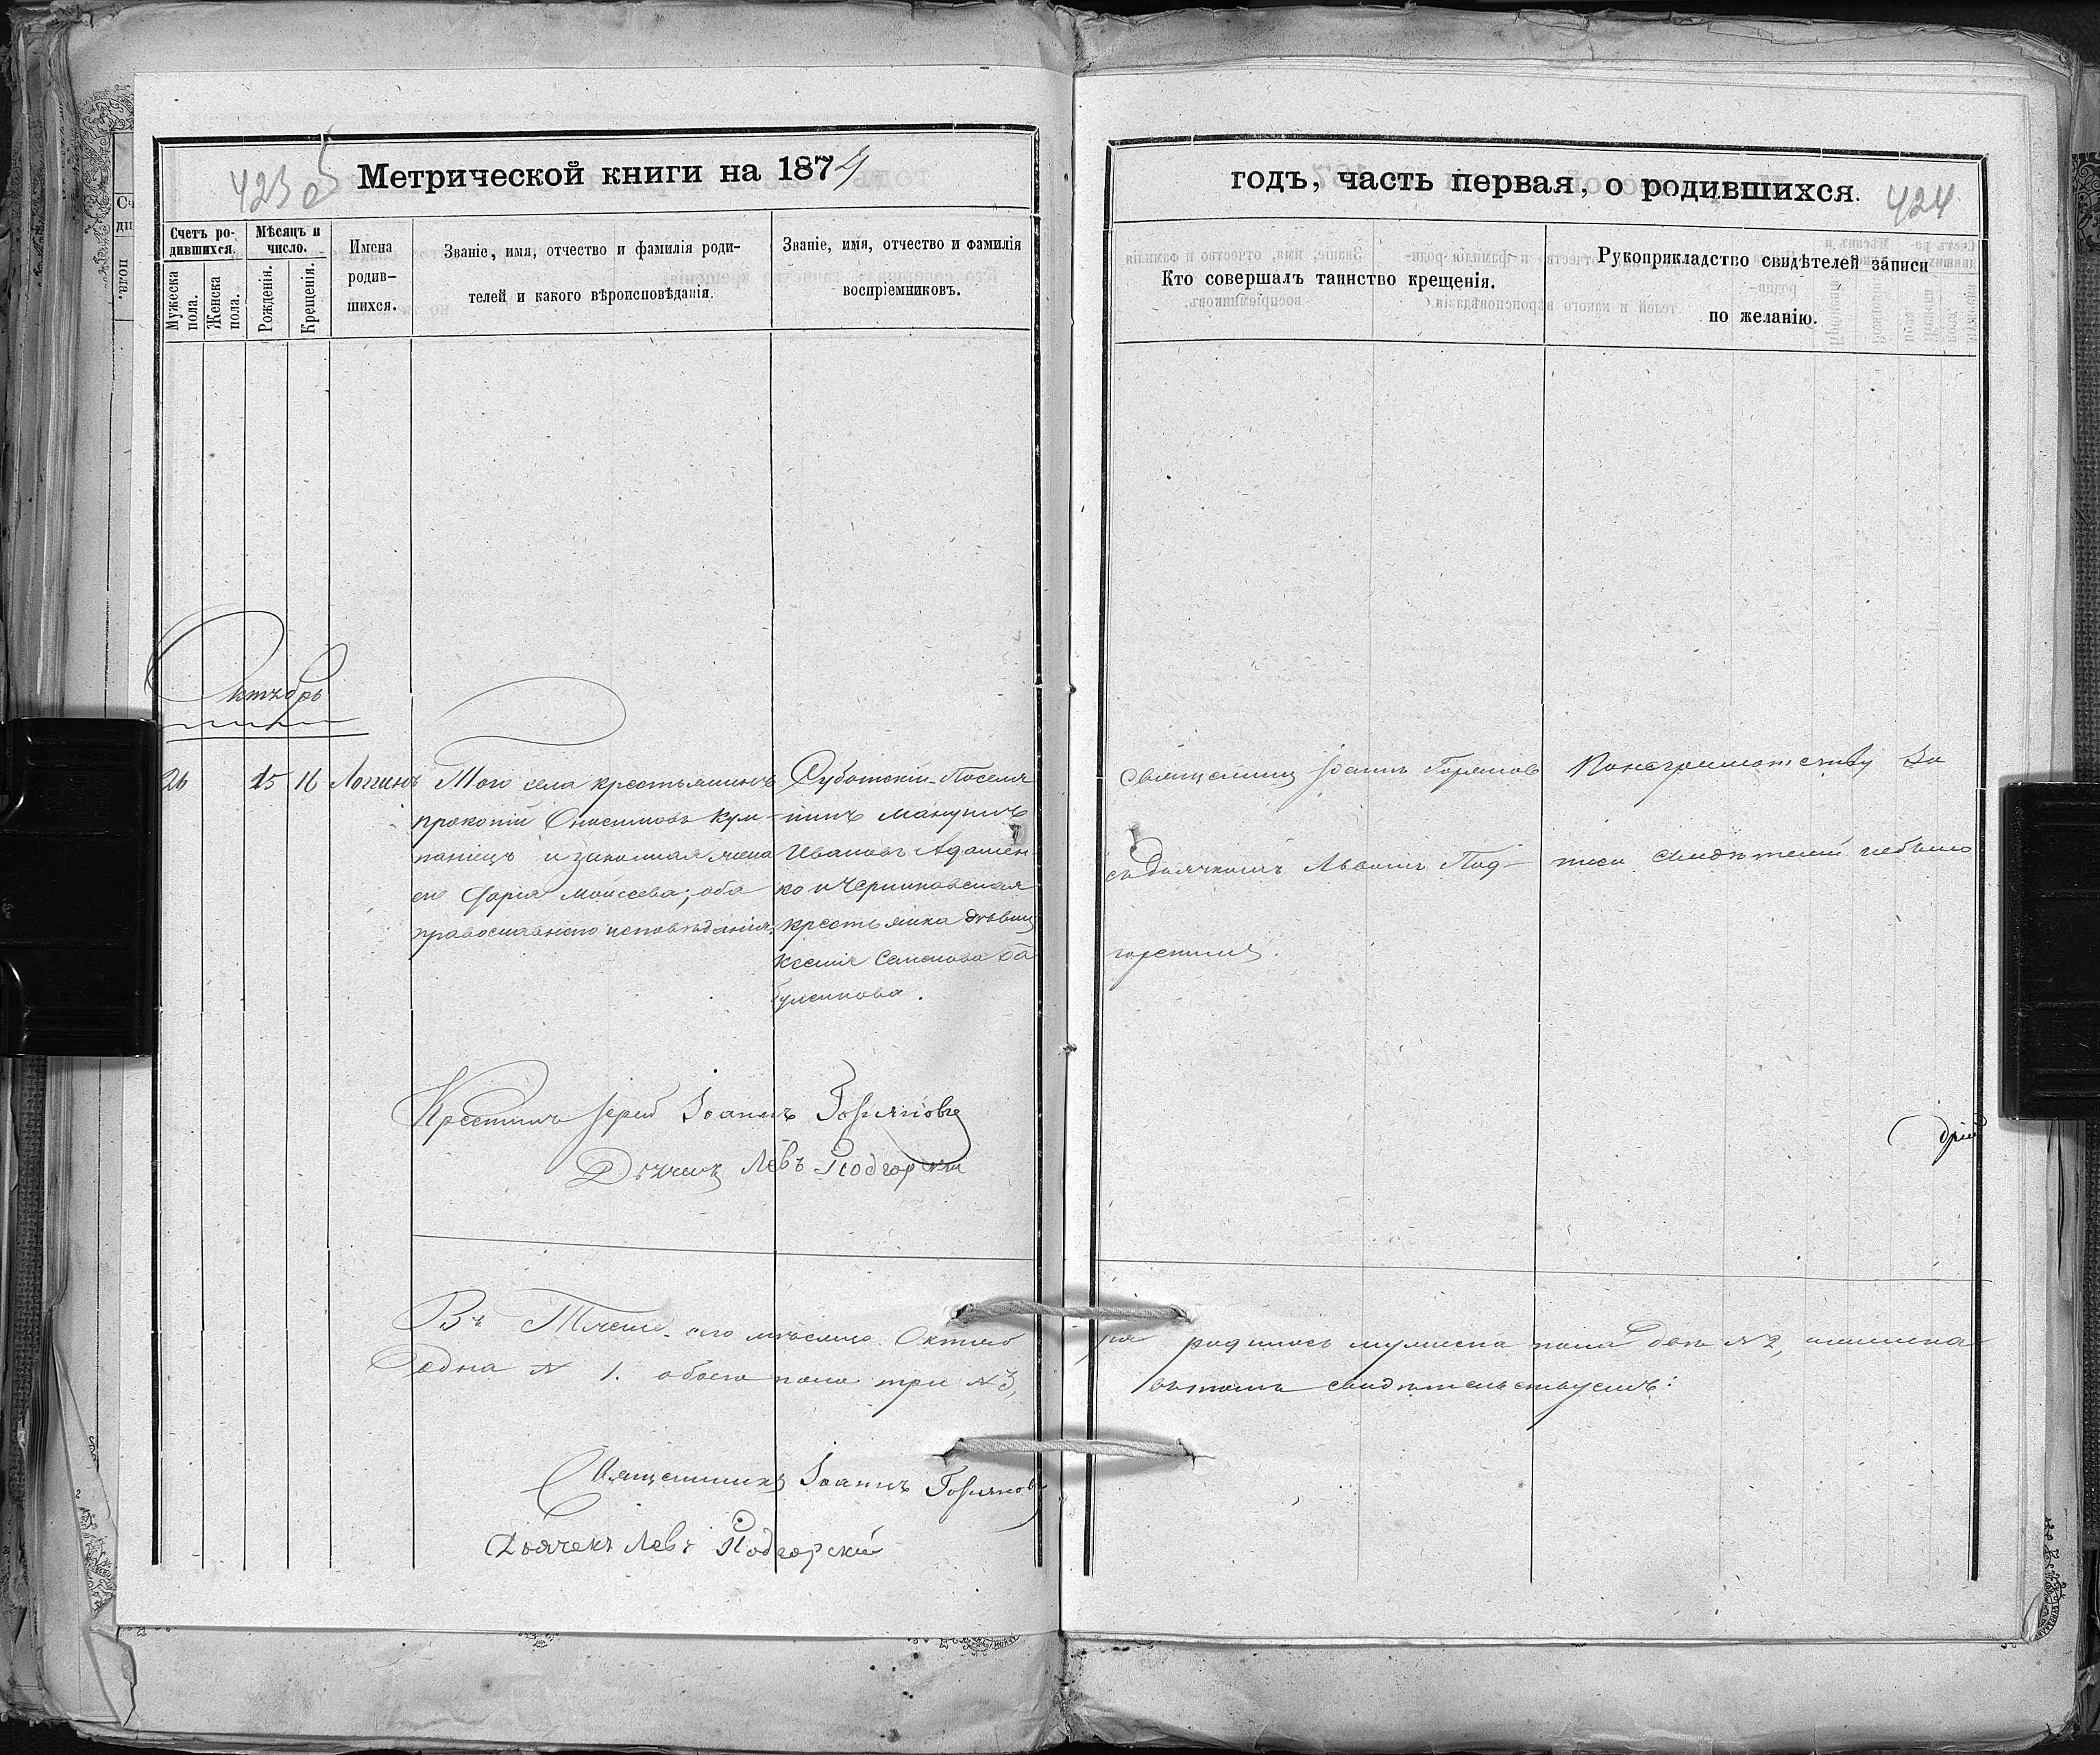 423 об
Метрической книги на 1874
годъ, часть первая, о родившихся.
424
Счетъ ро-
дившихся.
Мѣсяцъ и
число.
Мужеска
пола.
Женска
пола.
Рожденія.
Крещенія.
Имена
родив-
шихся.
Званіе, имя, отчество и фамилія роди-
телей и какого вѣроисповѣданія.
Званіе, имя, отчество и фамилія
воспріемниковъ.
Кто совершалъ таинство крещенія.
Рукоприкладство свидѣтелей записи
по желанію.
Октябрь
26 15 16 Логгинъ
Того села крестьянинъ
Прокопій Онисимовъ Кум-
панецъ и законная жена
его Дарія Моисеева; оба
православнаго исповѣданія.
Суботскій Поселя
нинъ
Ивановъ Адамен
ко и Черниковская
крестьянка дѣвица
Ксенія Семенова Ба
Священникъ Іоаннъ Горяновъ
съ дьячкомъ Львомъ Под-
горскимъ.
По неграмотству За
писи свидѣтелей небыло
Крестилъ Іерей Іоаннъ Горяновъ
Дьячекъ Левъ Подгорскій
Въ Теченіе сего мѣсяца Октяб
ря родилось мужеска пола два №2, женска
одна № 1. обоего пола три №3,
въ томъ свидѣтельствуемъ:
Священникъ Іоаннъ Горяновъ
Дьячекъ Левъ Подгорскій